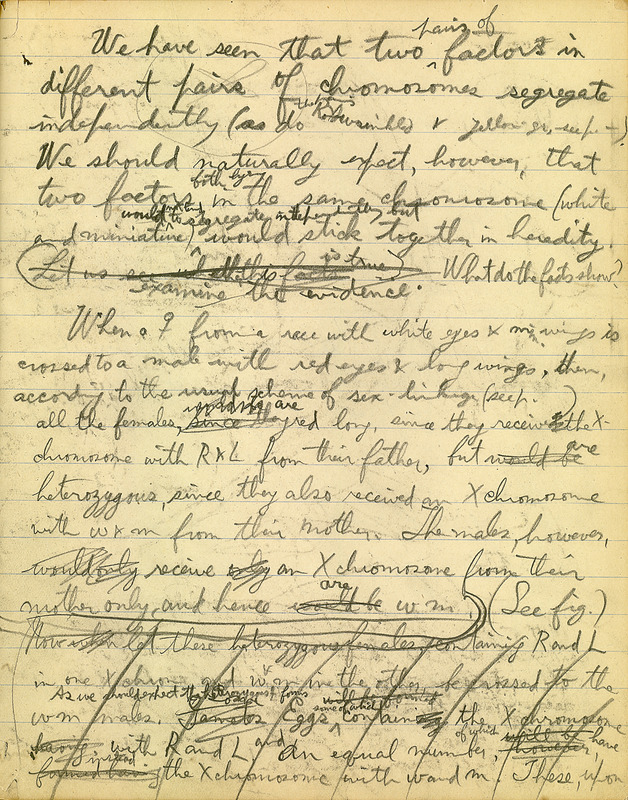 We have seen that two pairs of factors in
different pairs of chromosomes segregate
independently (as do wrinkled & yellow gr, see p -)
We should naturally expect, however, that
two factors both lying in the same chromosome (white
would not segregate independently but
and miniature) would stick together in heredity.
Let us see whether this fact is true) What do the facts show?
examine the evidence.
When a ♀ from a race with white eyes & min. wings is
crossed to a male with red eyes & long wings, then,
according to the usual scheme of sex-linkage (see p. )
all the females, are red long, since they received the X-
chromosome with R & L from their father, but would be are
heterozygous, since they also received an X chromosome
with w & m from their mother. The males, however,
would only receive only an X chromosome from their
mother only, and hence would be are w m. (See fig.)
Now when let these heterozygous females, containing R and L
in one X chrom. and w & m in the other be crossed to the
As we should expect the heterozygous forms
w m males. Eggs some of which containing the X chromosome
having with R and L and an equal number, of which will be have
instead
formed having the X chromosome with w and m. These, upon